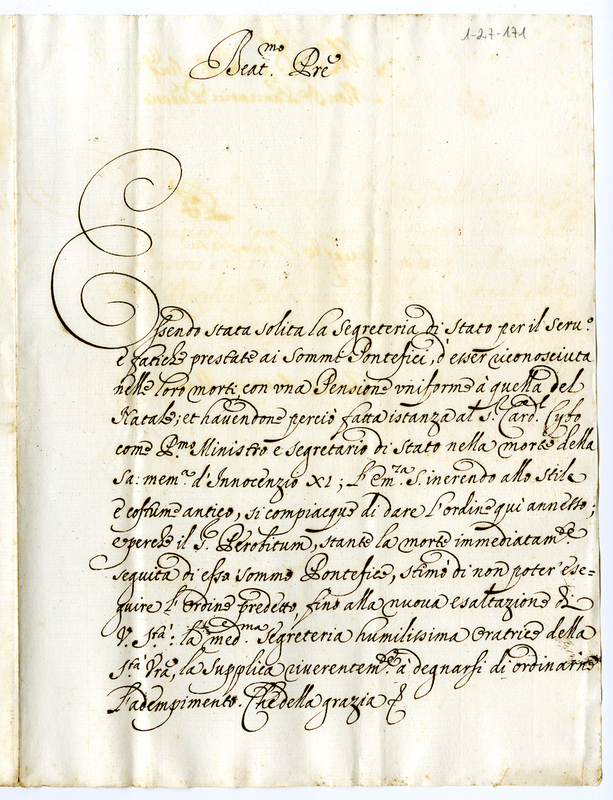 1-27-171
Beat.mo Pre
Essendo stata solita la Segreteria di Stato per il seru.o
e fatiche prestate ai Sommi Pontefici, d'esser riconosciuta
nelle loro morti con vna Pensione vniforme à quella del
Natale; et hauendone perciò fatta istanza al S.r Card.l Cybo
come P.mo Ministro e Segretario di Stato nella morte della
Sa: mem.a d'Innocenzio XI; l'Em.za S. inerendo allo stile
e costume antico, si compiacque di dare l'ordine qui annesso;
e perche il S. Perobitum, stante la morte immediatam.te
seguita di esso Sommo Pontefice, stimò di non poter ese-
guire l'Ordine predetto, fino alla nuova esaltazione di
V. S.tà: la med.ma Segreteria humilissima oratrice della
S.tà Vra, la supplica riverentem.te à degnarsi di ordinarne
l'adempimento. Che della grazia &